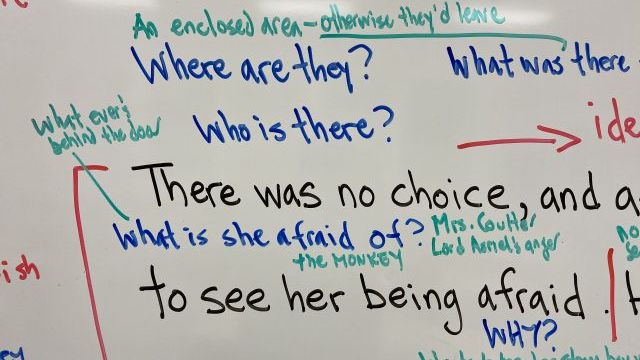 An enclosed area - otherwise they'd leave
Where are they?
What was there
What ever's
behind the door
Who is there?
ide
There was no choice, and a
What is she afraid of?
Mrs. Coulter
the MONKEY
ish
to see her being afraid.
WHY?